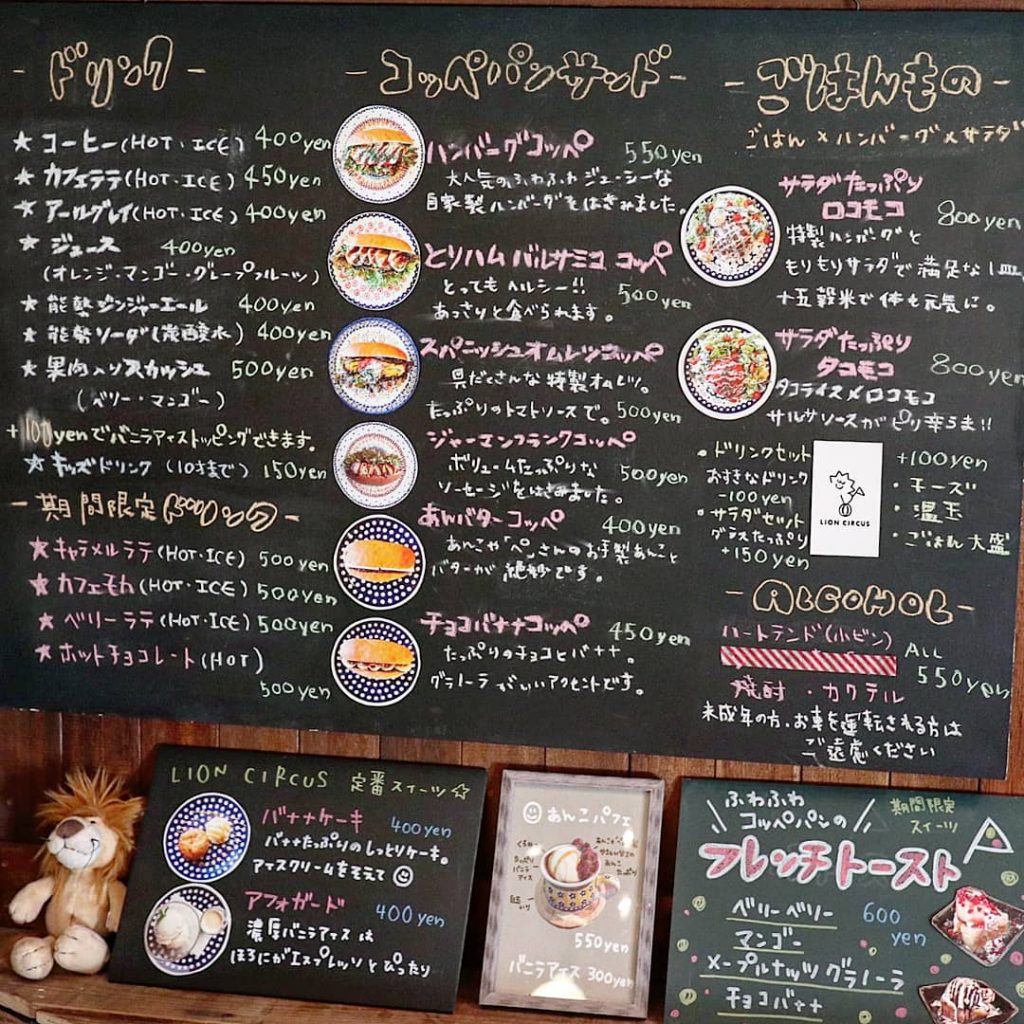 - ドリンク -
★ コーヒー(HOT・ICE) 400yen
★ カフェラテ(HOT・ICE) 450yen
★ アールグレイ(HOT・ICE) 400yen
★ ジュース 400yen
(オレンジ・マンゴー・グレープフルーツ)
★ 能勢ジンジャーエール 400yen
★ 能勢ソーダ(炭酸水) 400yen
★ 果肉入りスカッシュ 500yen
(ベリー・マンゴー)
+100yenでバニラアイストッピングできます。
★ キッズドリンク (10才まで) 150yen
- 期間限定ドリンク -
★ キャラメルラテ(HOT・ICE) 500yen
★ カフェモカ(HOT・ICE) 500yen
★ ベリーラテ(HOT・ICE) 500yen
★ ホットチョコレート(HOT)
500yen
- コッペパンサンド -
ハンバーグコッペ 550yen
大人気のふわふわジューシーな
自家製ハンバーグをはさみました。
とりハム バルサミコ コッペ
とってもヘルシー!! 500yen
あっさりと食べられます。
スパニッシュオムレツコッペ
具だくさんな特製オムレツ。
たっぷりのトマトソースで。 500yen
ジャーマンフランクコッペ
ボリュームたっぷりな 500yen
ソーセージをはさみました。
あんバターコッペ 400yen
あんこや"ぺ"さんのお手製あんこと
バターが絶妙です。
チョコバナナコッペ 450yen
たっぷりのチョコとバナナ。
グラノーラがいいアクセントです。
- ごはんもの -
ごはん×ハンバーグ×サラダ
サラダたっぷり
ロコモコ 800yen
特製ハンバーグと
もりもりサラダで満足な1皿
十五穀米で体も元気に。
サラダたっぷり
タコモコ 800yen
タコライス×ロコモコ
サルサソースがピリ辛うま!!
・ドリンクセット
おすきなドリンク
-100yen
・サラダセット
グラスたっぷり
+150yen
LION CIRCUS
+100yen
・チーズ
・温玉
・ごはん大盛
- ALCOHOL -
ハートランド(小ビン)
ALL
550yen
焼酎・カクテル
未成年の方、お車を運転される方は
ご遠慮ください
LION CIRCUS 定番スイーツ☆
バナナケーキ 400yen
バナナたっぷりのしっとりケーキ。
アイスクリームをそえて
アフォガード 400yen
濃厚バニラアイスは
ほろにがエスプレッソとぴったり
あんこパフェ
550yen
バニラアイス 300yen
ふわふわ
コッペパンの
期間限定
スイーツ
フレンチトースト
ベリーベリー 600
yen
マンゴー
メープルナッツグラノーラ
チョコバナナ